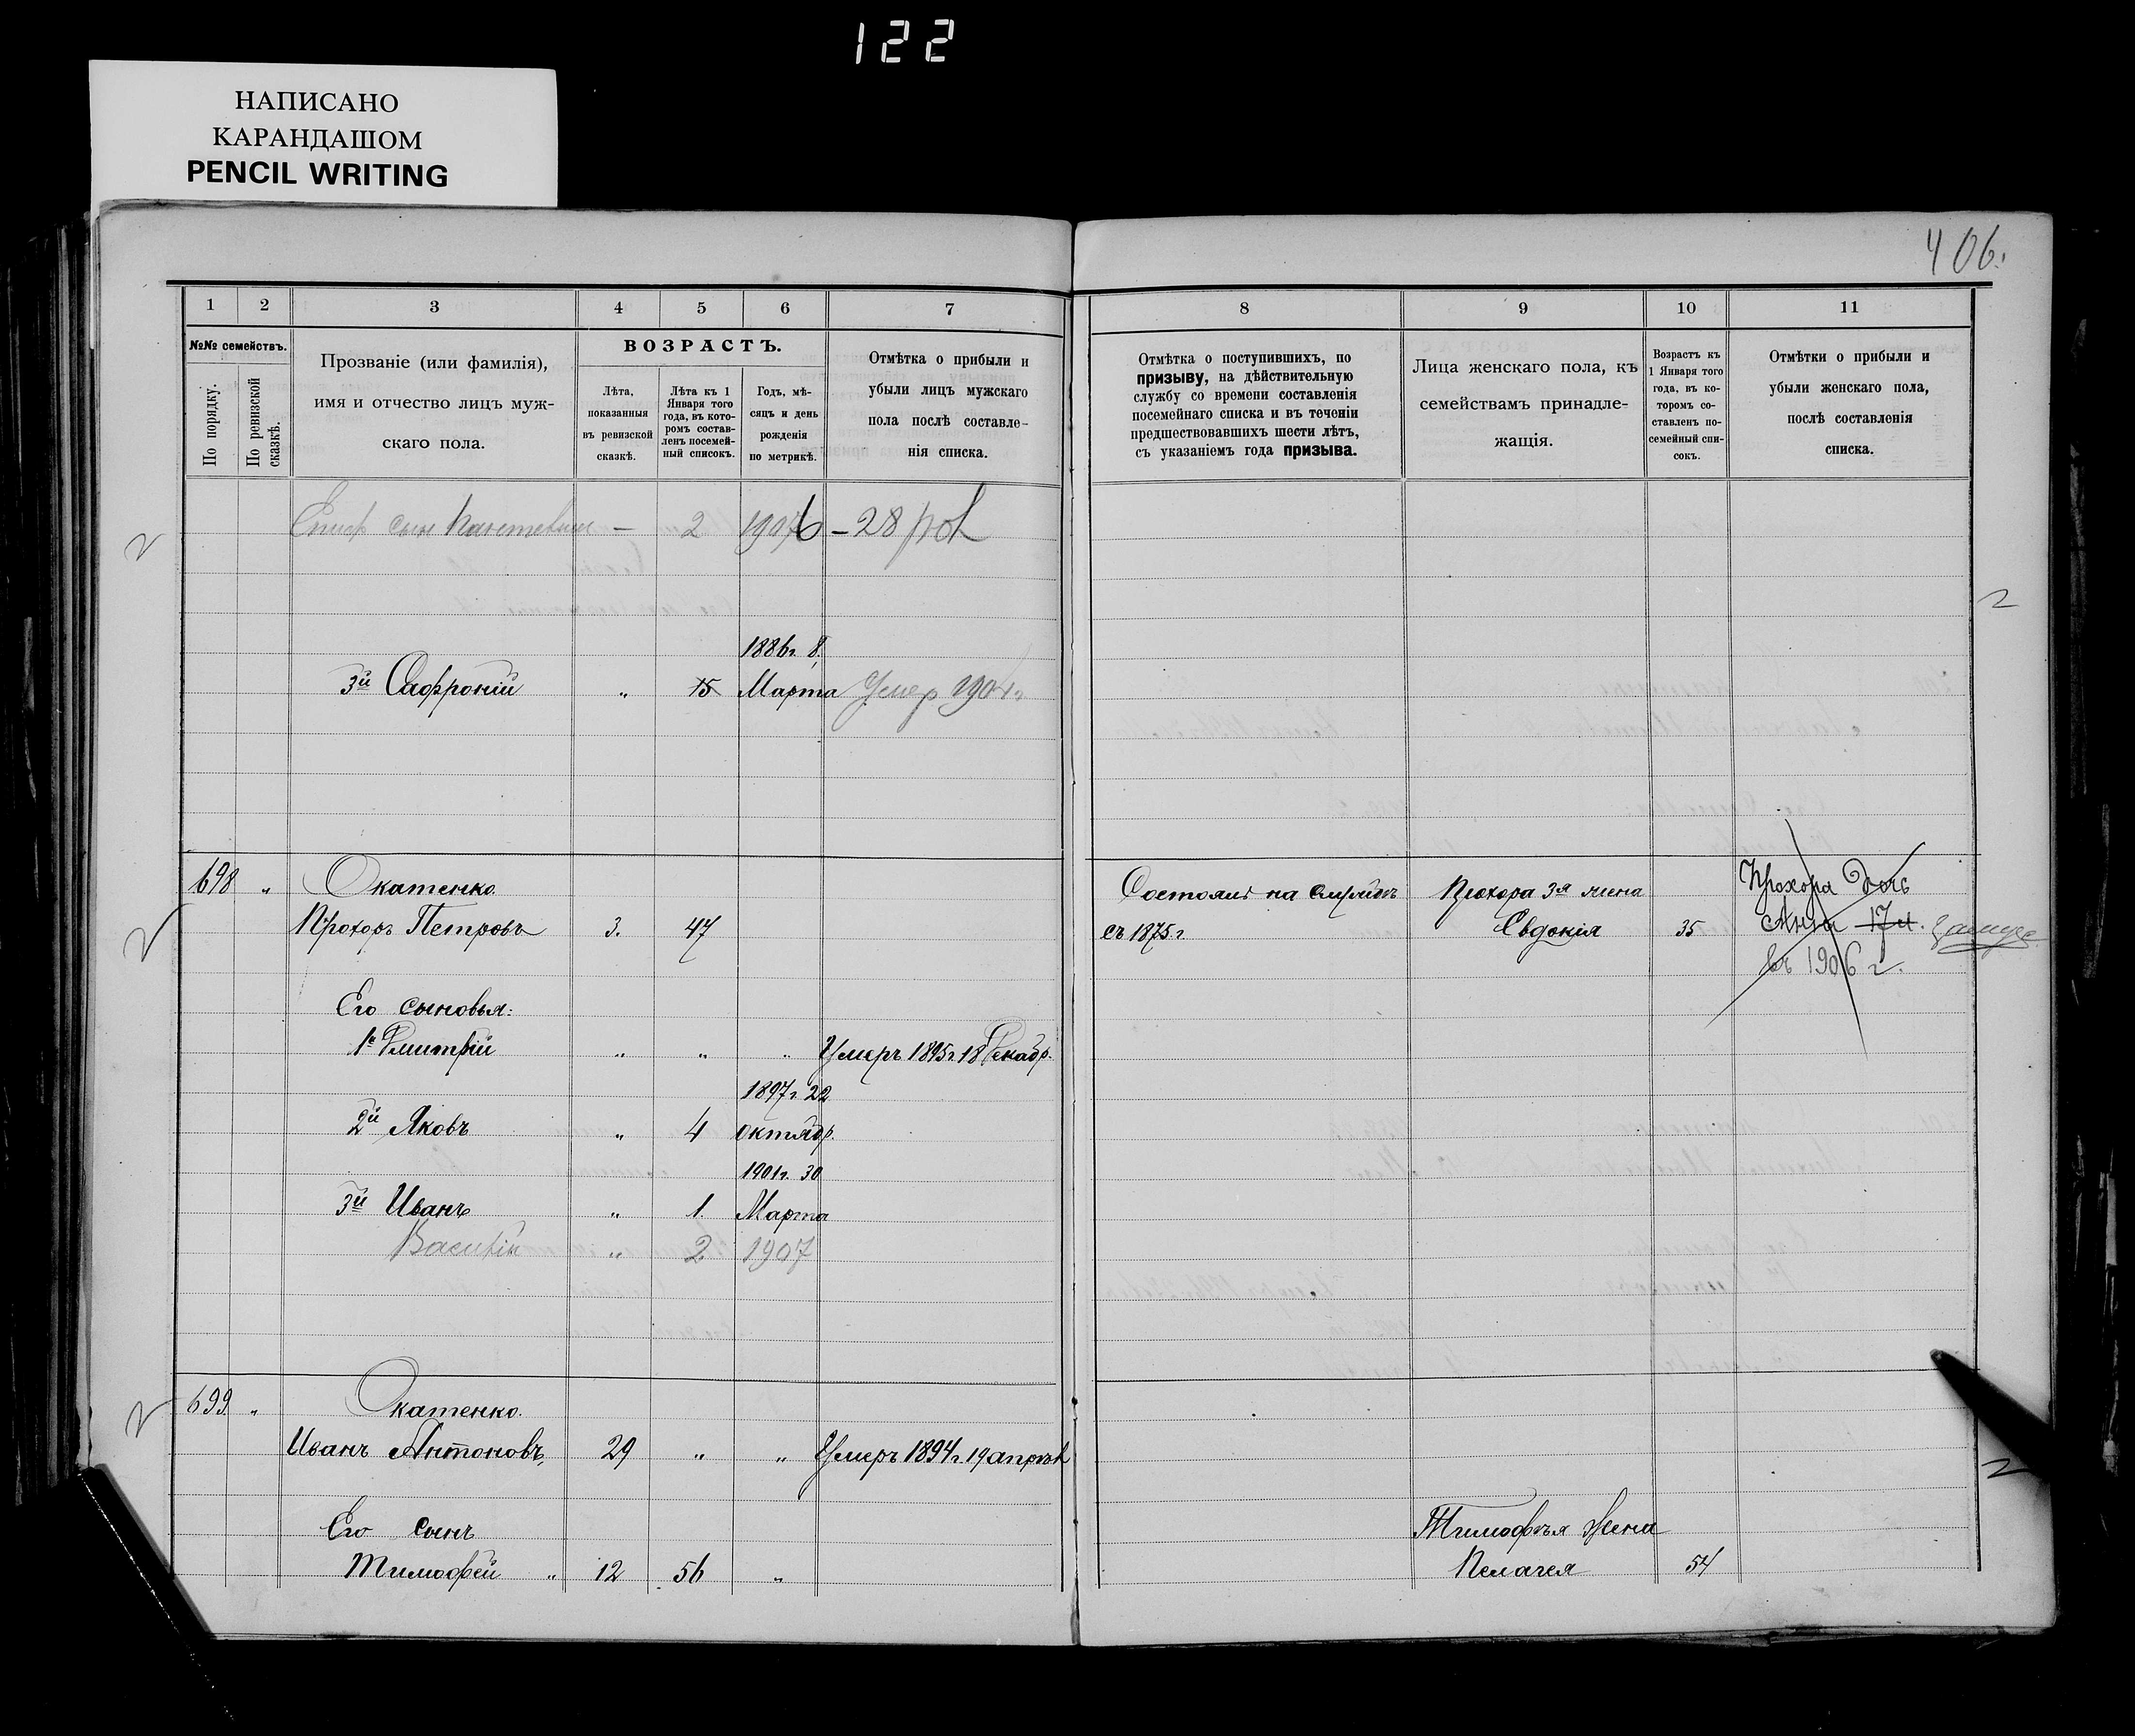 122
НАПИСАНО
КАРАНДАШОМ
PENCIL WRITING
406.
1 2 3 4 5 6 7 8 9 10 11
№№ семействъ.
По порядку.
По ревизской сказкѣ.
Прозваніе (или фамилія),
имя и отчество лицъ муж-
скаго пола.
ВОЗРАСТЪ.
Лѣта,
показанныя
въ ревизской
сказкѣ.
Лѣта къ 1
Января того
года, въ кото-
ромъ состав-
ленъ посемей-
ный списокъ.
Годъ, мѣ-
сяцъ и день
рожденія
по метрикѣ.
Отмѣтка о прибыли и
убыли лицъ мужскаго
пола послѣ составле-
нія списка.
Отмѣтка о поступившихъ, по
призыву, на дѣйствительную
службу со времени составленія
посемейнаго списка и въ теченіи
предшествовавшихъ шести лѣтъ,
съ указаніемъ года призыва.
Лица женскаго пола, къ
семействамъ принадле-
жащія.
Возрастъ къ
1 Января того
года, въ ко-
торомъ со-
ставленъ по-
семейный спи-
сокъ.
Отмѣтки о прибыли и
убыли женскаго пола,
послѣ составленія
списка.
сын — 2 1906 – 28
1886 г. 8.
3й Сафроній „ 15 Марта Умер 1904 г
698 „ Окатенко Состоялъ на службѣ Прохора 3я жена Прохора дочь
Прохоръ Петровъ 3. 47 съ 1875 г. Евдокія 35 Анна 17 л. замуж
въ 1906 г.
Его сыновья:
1й Дмитрій „ „ „ Умеръ 1895 г. 18 Декабр.
1897 г. 22
2й Яковъ „ 4 октябр.
1901 г. 30
3й Иванъ „ 1. Марта
Василій „ 2 1907
699 „ Окатенко.
Иванъ Антоновъ, 29 „ „ Умеръ 1894 г. 19 апрѣл
Его сынъ Тимофѣя жена
Тимофей „ 12 56 „ Пелагея 54